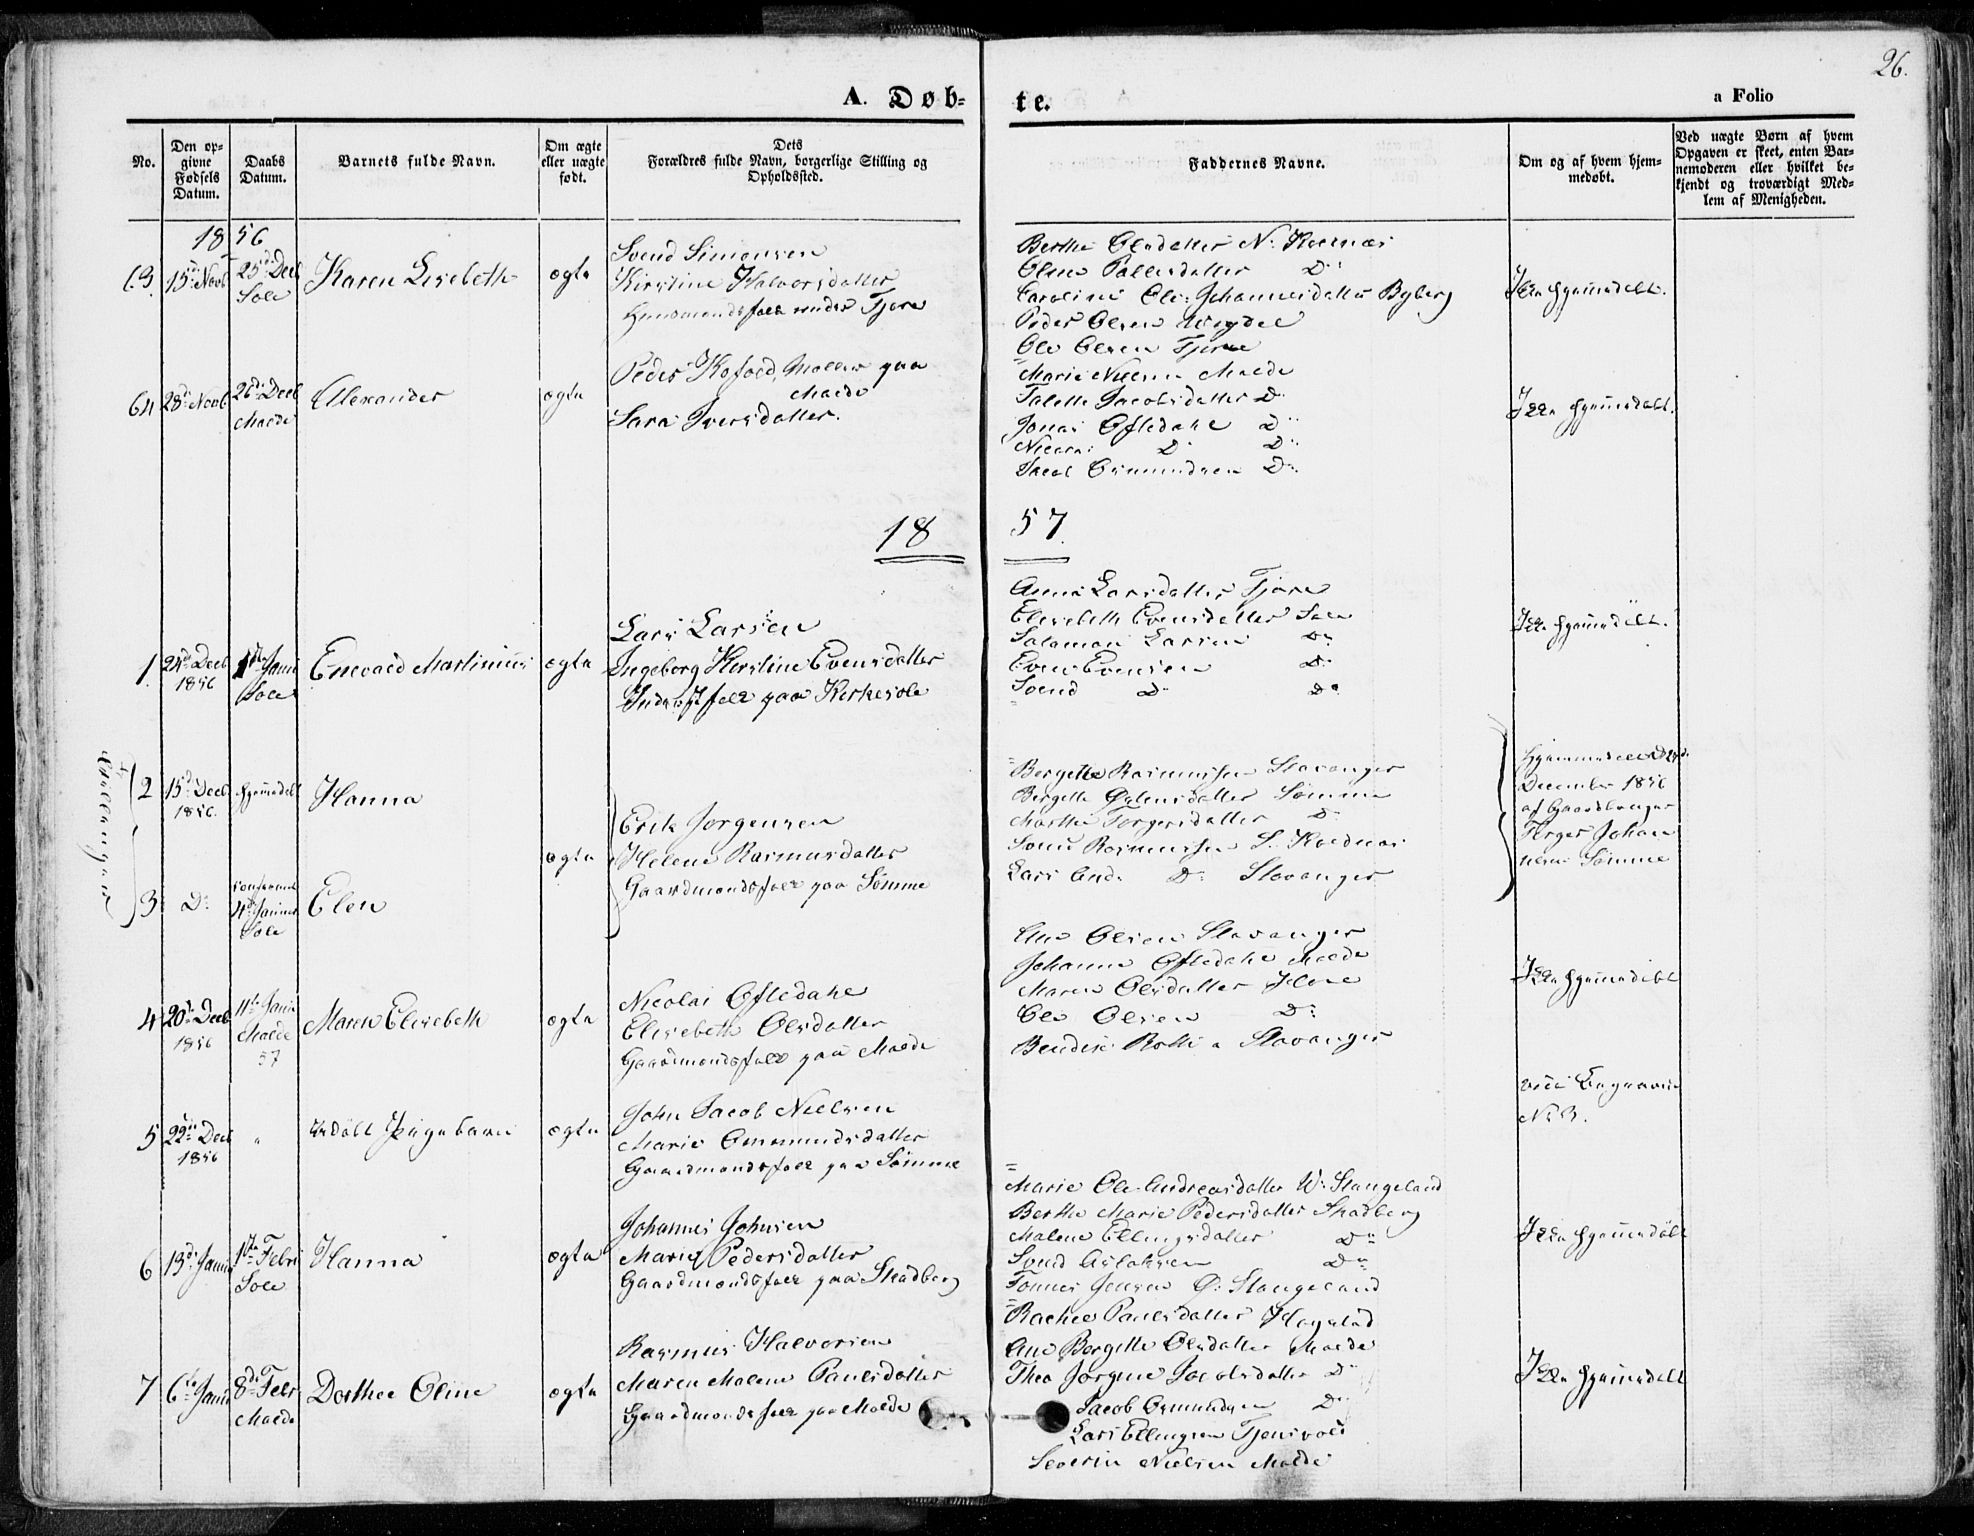 26.
A. Døb-
te.
a Folio
No.
Den op-
givne
Fødsels
Datum.
Daabs
Datum.
Barnets fulde Navn.
Om ægte
eller uægte
født.
Dets
Forældres fulde Navn, borgerlige Stilling og
Opholdssted.
Faddernes Navne.
Om og af hvem hjem-
medøbt.
Ved uægte Børn af hvem
Opgaven er skeet, enten Bar-
nemoderen eller hvilket be-
kjendt og troværdigt Med-
lem af Menigheden.
1856
63.
15de Novb
25de Decb
Sole
Karen Lisebeth
ægte
Svend Simonsen
Kirstine Halvorsdatter
Huusmandsfolk under Tjora
Berthe Olsdatter N. Kolnæs
Oline Pallesdatter Do
Caroline Ole Johannesdatter Byberg
Peder Olsen Wigdel
Ole Olsen Tjora
Ikke hjemmedøbt.
64
28de Novb
26de Decb
Malde
Alexander
ægte
Peder Kofoed, Møller paa
Malde
Sara Iversdatter.
Marie Nielsen Malde
Talette Jacobsdatter Do
Jonas Oftedahl Do
Nicolai Do Do
Jacob Osmundsen Do
Ikke hjemmedøbt.
1857.
1.
24de Decb
1856
1ste Janu
Sole
Enevald Martinius
ægte
Lars Larsen
Ingeborg Kirstine Evensdatter
Inderstfolk paa Kirkesole
Anna Larsdatter Tjora
Elisebeth Evensdatter Sole
Salamon Larsen Do
Even Evensen Do
Svend Do Do
Ikke hjemmedøbt.
Tvillingpar
2
15de Decb
1856.
hjemmedøbt
Hanna
ægte
Erik Jørgensen
Helene Rasmusdatter
Gaardmandsfolk paa Sømme
Bergette Rasmussen Stavanger
Bergitte Østensdatter Sømme
Marthe Torgersdatter Do
Svend Rasmussen S. Kolnæs
Lars And. Do Stavanger
December 1856
af Gaardbruger
Torger Johan
nesen Sømme
3
Do
4de Januar
Sole
Elen
4
20de Decb
1856
11te Janu
Malde
57
Maren Elisebeth
ægte
Nicolai Oftedahl
Elisebeth Olsdatter
Gaardmandsfolk paa Malde
Ane Olsen Stavanger
Johanne Oftedahl Malde
Maren Olsdatter
Ole Olsen Do
Stavanger
Ikke hjemmedøbt
5
22de Decb
1856
"
udøbt Pigebarn
ægte
John Jacob Nielsen
Marie Ommundsdatter
Gaardmandsfolk paa Sømme
No 3.
6
13de Janu
1ste Febr
Sole
Hanna
ægte
Johannes Johnsen
Marie Pedersdatter
Gaardmandsfolk paa Skadberg
Marie Ole Andreasdatter W. Stangeland
Berthe Marie Pedersdatter Skadberg
Malene Ellingsdatter Do
Svend Aslaksen Do
Tønnes Jensen Ø. Stangeland
Ikke hjemmedøbt
7
6te Janu
8de Febr
Malde
Dorthee Oline
ægte
Rasmus Halvorsen
Maren Malene Paulsdatter
Gaardmandsfolk paa Malde
Rachel Paulsdatter Hogstad
Ane Bergitte Olsdatter Malde
Thea Jørgine Jacobsdatter Do
Jacob Osmundsen Do
Lars Ellingsen Tjensvold
Severin Nielsen Malde
Ikke hjemmedøbt